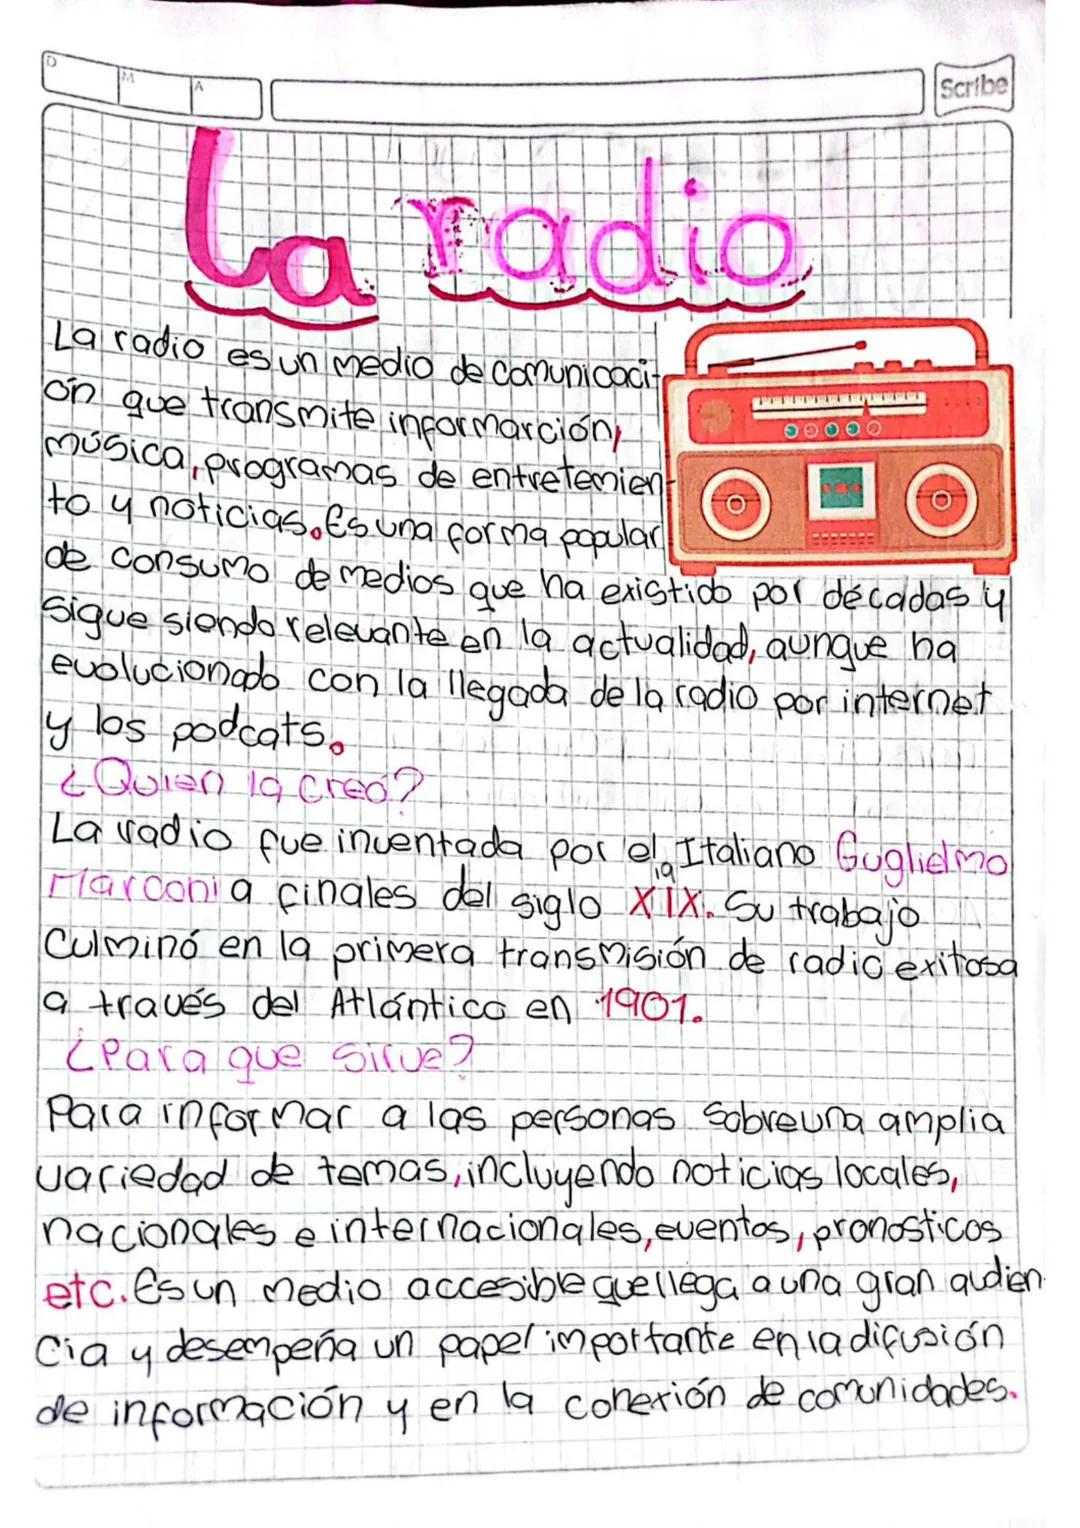 D
M
A
Scribe
La radio
La radio es un medio de comunicaci-
ón que transmite informarción,
música, programas de entretemien-
to y noticias. Es una forma popular
de consumo de medios que ha existido por décadas y
sigue siendo relevante en la actualidad, aunque ha
evolucionado con la llegada de la radio por internet
y los podcats.
¿Quien la creó?
La radio fue inventada por el Italiano Guglielmo
19
Marconi a finales del siglo XIX. Su trabajo
Culminó en la primera transmisión de radio exitosa
a través del Atlántico en 1901.
¿Para que sirve?
Para informar a las personas sobre una amplia
variedad de temas, incluyendo noticias locales,
nacionales e internacionales, eventos, pronosticos
etc. Es un medio accesible que llega a una gran audien-
cia y desempeña un papel importante en la difusión
de información y en la conexión de comunidades.